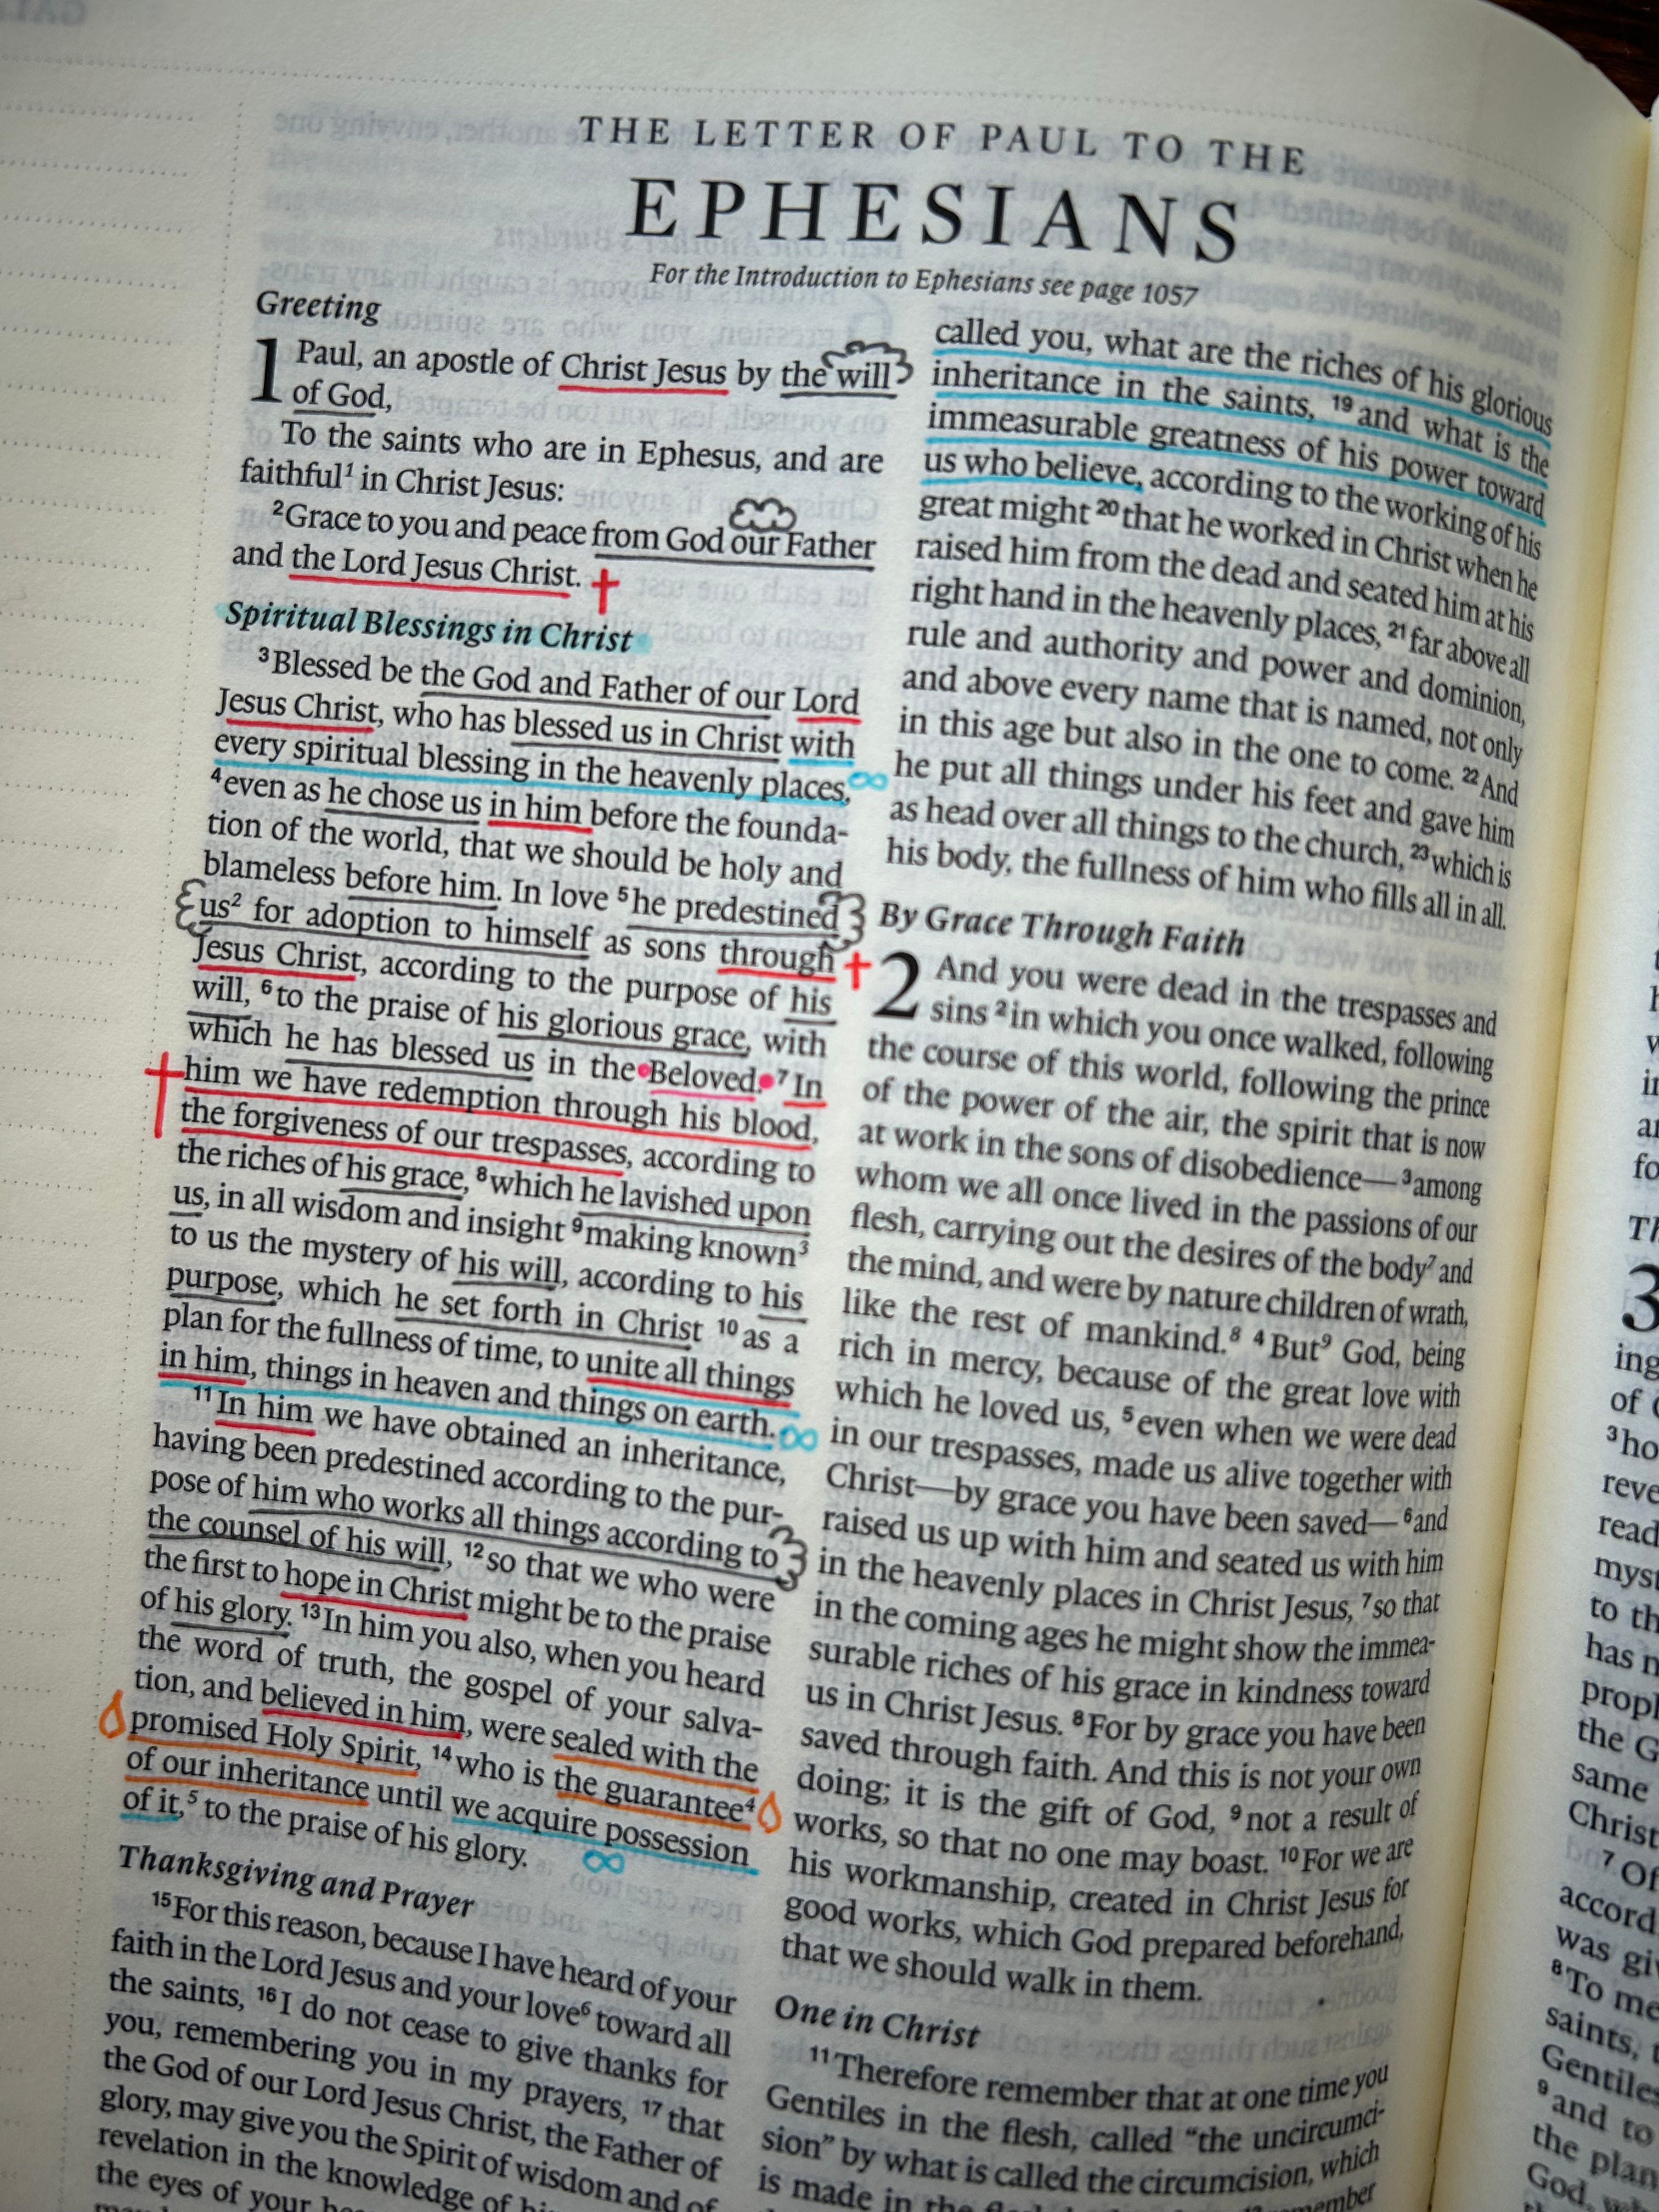 THE LETTER OF PAUL TO THE
EPHESIANS
For the Introduction to Ephesians see page 1057
Greeting
1 Paul, an apostle of Christ Jesus by the will
of God,
To the saints who are in Ephesus, and are
faithful¹ in Christ Jesus:
²Grace to you and peace from God our Father
and the Lord Jesus Christ.
Spiritual Blessings in Christ
³Blessed be the God and Father of our Lord
Jesus Christ, who has blessed us in Christ with
every spiritual blessing in the heavenly places,
⁴even as he chose us in him before the founda-
tion of the world, that we should be holy and
blameless before him. In love ⁵he predestined
us² for adoption to himself as sons through
Jesus Christ, according to the purpose of his
will, ⁶to the praise of his glorious grace, with
which he has blessed us in the Beloved. ⁷In
him we have redemption through his blood,
the forgiveness of our trespasses, according to
the riches of his grace, ⁸which he lavished upon
us, in all wisdom and insight ⁹making known³
to us the mystery of his will, according to his
purpose, which he set forth in Christ ¹⁰as a
plan for the fullness of time, to unite all things
in him, things in heaven and things on earth.
¹¹In him we have obtained an inheritance,
having been predestined according to the pur-
pose of him who works all things according to
the counsel of his will, ¹²so that we who were
the first to hope in Christ might be to the praise
of his glory. ¹³In him you also, when you heard
the word of truth, the gospel of your salva-
tion, and believed in him, were sealed with the
promised Holy Spirit, ¹⁴who is the guarantee⁴
of our inheritance until we acquire possession
of it,⁵ to the praise of his glory.
Thanksgiving and Prayer
¹⁵For this reason, because I have heard of your
faith in the Lord Jesus and your love⁶ toward all
the saints, ¹⁶I do not cease to give thanks for
you, remembering you in my prayers, ¹⁷that
the God of our Lord Jesus Christ, the Father of
glory, may give you the Spirit of wisdom and of
revelation in the knowledge of
the eyes of your
called you, what are the riches of his glorious
inheritance in the saints, ¹⁹and what is the
immeasurable greatness of his power toward
us who believe, according to the working of his
great might ²⁰that he worked in Christ when he
raised him from the dead and seated him at his
right hand in the heavenly places, ²¹far above all
rule and authority and power and dominion,
and above every name that is named, not only
in this age but also in the one to come. ²²And
he put all things under his feet and gave him
as head over all things to the church, ²³which is
his body, the fullness of him who fills all in all.
By Grace Through Faith
2 And you were dead in the trespasses and
sins ²in which you once walked, following
the course of this world, following the prince
of the power of the air, the spirit that is now
at work in the sons of disobedience—³among
whom we all once lived in the passions of our
flesh, carrying out the desires of the body⁷ and
the mind, and were by nature children of wrath,
like the rest of mankind.⁸ ⁴But⁹ God, being
rich in mercy, because of the great love with
which he loved us, ⁵even when we were dead
in our trespasses, made us alive together with
Christ—by grace you have been saved—⁶and
raised us up with him and seated us with him
in the heavenly places in Christ Jesus, ⁷so that
in the coming ages he might show the immea-
surable riches of his grace in kindness toward
us in Christ Jesus. ⁸For by grace you have been
saved through faith. And this is not your own
doing; it is the gift of God, ⁹not a result of
works, so that no one may boast. ¹⁰For we are
his workmanship, created in Christ Jesus for
good works, which God prepared beforehand,
that we should walk in them.
One in Christ
¹¹Therefore remember that at one time you
Gentiles in the flesh, called “the uncircumci-
sion” by what is called the circumcision, which
is made in the
3
ing
of
³ho
reve
read
myst
to th
has
prop
the G
same
Christ
⁷Of
accord
was
⁸To me
saints,
Gentiles
⁹and to
the plan
God